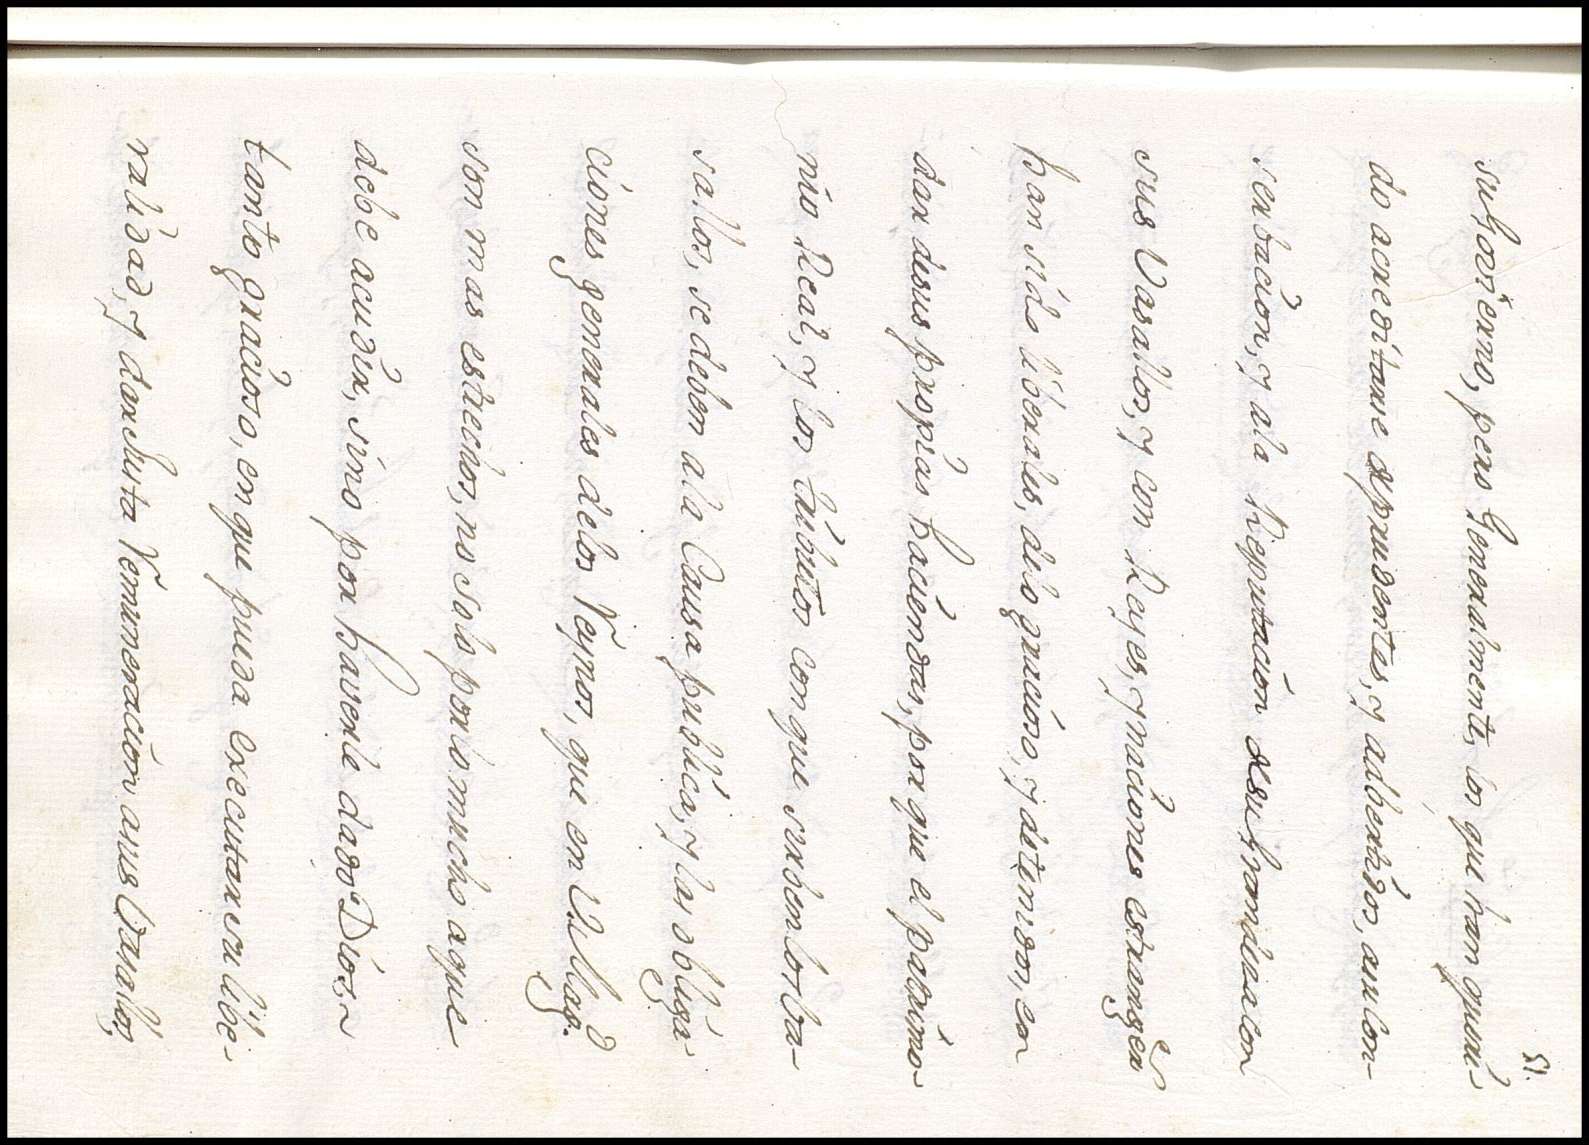 51.
su Govierno, pero Generalmente los que han queri-
do acreditarse de prudentes, y adbertidos, au con-
serbacion, y ala Reputacion de su grandeza con
sus Vasallos, y con Reyes, y naciones estranger.s
han sido liberales, delo gracioso, y detenidos, en
dar desus propias haciendas, por que el patrimo-
nio Real, y los tributos con que sirben los ba-
sallos, se deben ala Causa publica, y las obliga-
ciones generales delos Reynos, que en V. Mag.d
son mas estrechos, no solo por lo mucho aque
debe acudir, sino por haverle dado Dios
tanto gracioso, en que pueda executar su libe-
ralidad, y dar justa Remuneracion asus Vasallos,